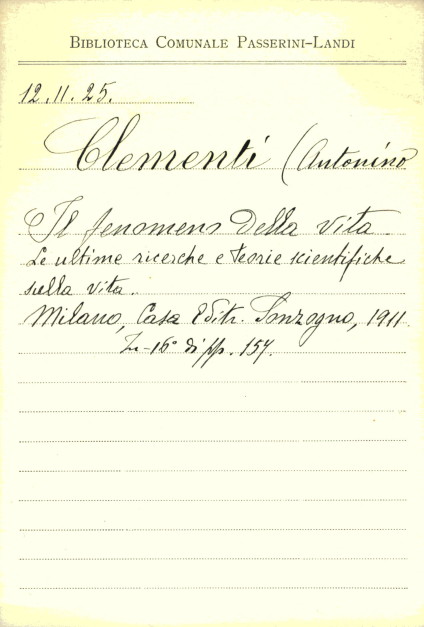 BIBLIOTECA COMUNALE PASSERINI-LANDI
12.11.25.
Clementi (Antonino
Il fenomeno della vita.
Le ultime ricerche e teorie scientifiche
sulla vita.
Milano, Casa Editr. Sonzogno, 1911
In-16° di pp. 157.